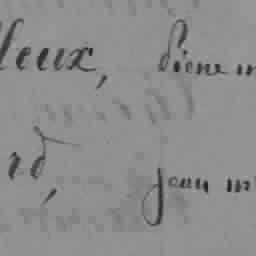 lleux, Pierre m
rd, jean m